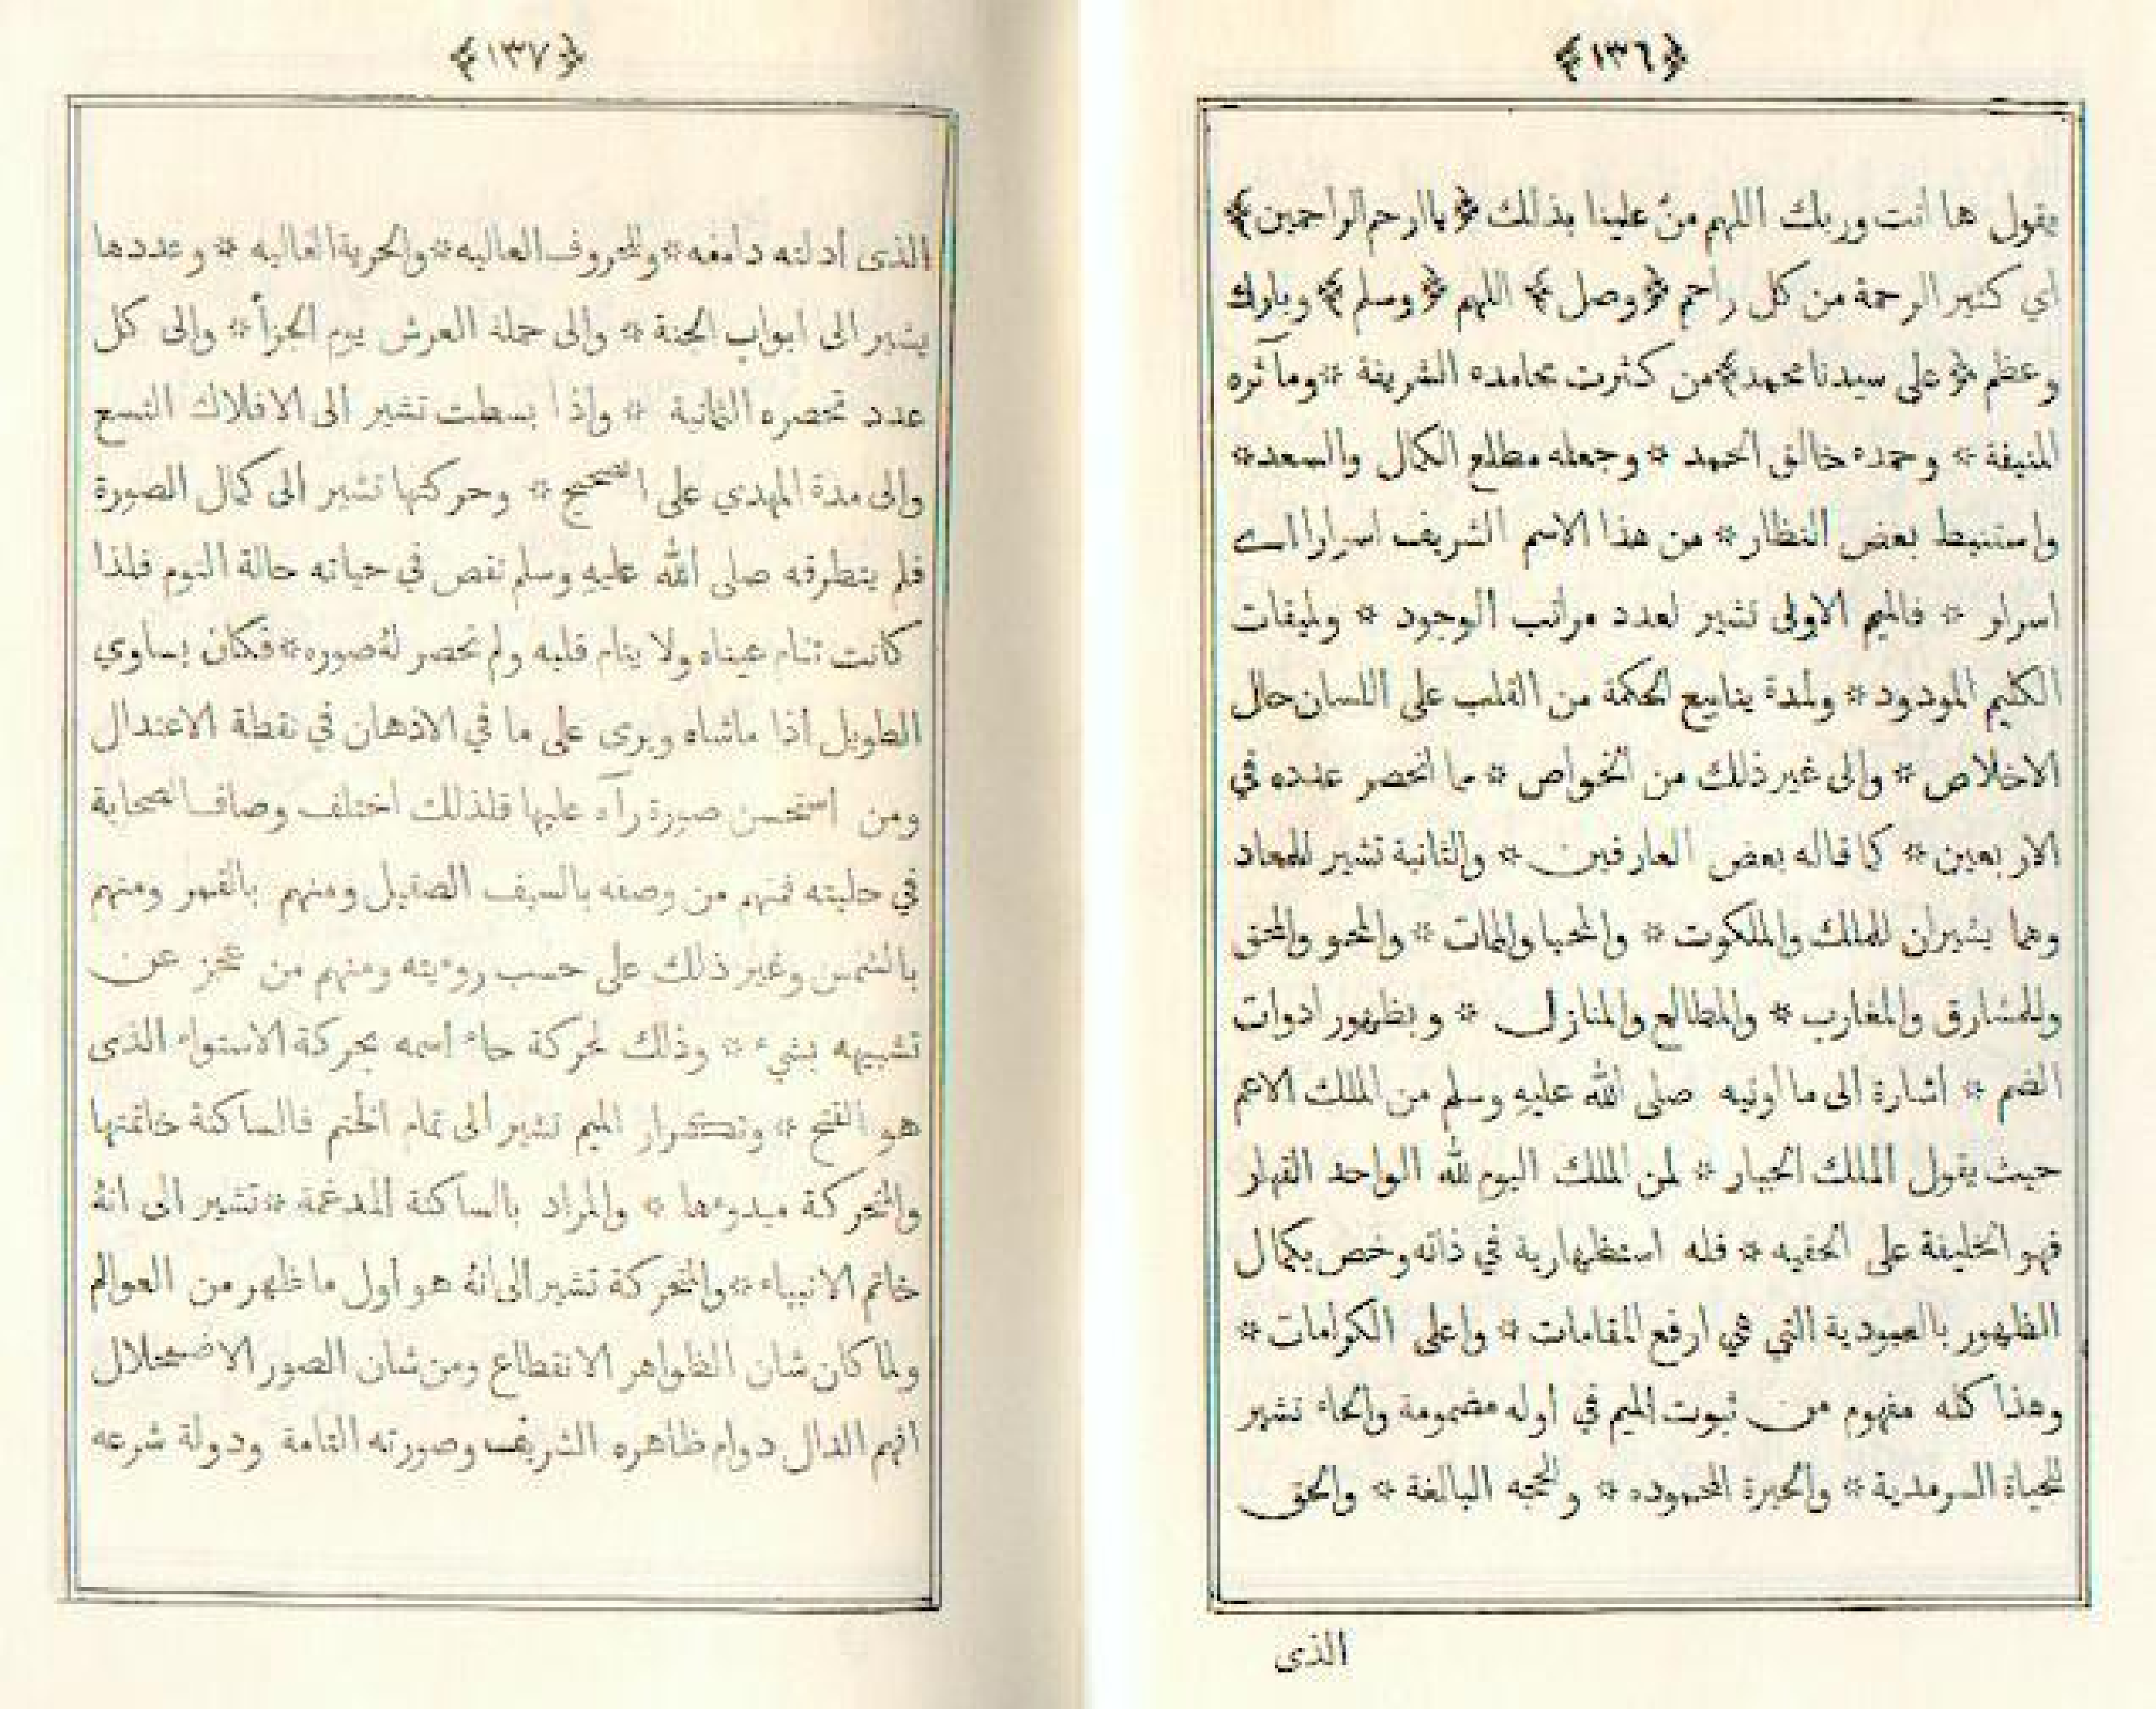 ﴿١٣٦﴾
يقول ها انت وربك اللهم منّ علينا بذلك ﴿ياارحم الراحمين﴾
اي كثير الرحمة من كل راحم ﴿وصل﴾ اللهم ﴿وسلم﴾ وبارك
وعظم ﴿على سيدنا محمد﴾ من كثرت محامده الشريفة * ومآثره
المنيفة * وحمده خالق الحمد * وجعله مطلع الكمال والسعد *
واستنبط بعض النظار * من هذا الاسم الشريف اسرارا اے
اسرار * فالميم الاولى تشير لعدد مراتب الوجود * وليقات
الكليم المودود * ولمدة ينابيع الحكمة من القلب على اللسان حال
الاخلاص * والى غير ذلك من الخواص * مما انحصر عنده في
الاربعين * كما قاله بعض العارفين * والثانية تشير للمعاد
وهما يشيران للملك والملكوت * والمحيا والممات * والمحو والمحق
وللمشارق والمغارب * والمطالع والمنازل * وبظهور ادوات
الضم * اشارة الى ما اوتيه صلى الله عليه وسلم من الملك الاعم
حيث يقول الملك الجبار * لمن الملك اليوم لله الواحد القهار
فهو الخليفة على الحقيه * فله استظهارية في ذاته وخص بكمال
الظهور بالعبودية التي هي ارفع المقامات * واعلى الكرامات *
وهذا كله مفهوم من ثبوت الميم في اوله مضمومة والحاء تشير
للحياة السرمدية * والحيرة المحموده * والحجه البالغة * والحق
الذى
﴿١٣٧﴾
الذى ادلته دامغه * والحروف العاليه * والحرية الغاليه * وعددها
يشير الى ابواب الجنة * والى حملة العرش يوم الجزأ * والى كل
عدد تحصره الثمانية * واذا بسطت تشير الى الافلاك التسع
والى مدة المهدي على الصحيح * وحركتها تشير الى كمال الصورة
فلم يتطرقه صلى الله عليه وسلم نقص في حياته حالة النوم فلذا
كانت تنام عيناه ولا ينام قلبه ولم تحصر لهُ صوره * فكان يساوي
الطويل اذا ماشاه ويرى على ما في الاذهان في نقطة الاعتدال
ومن استحسن صورة رآه عليها فلذلك اختلف وصاف الصحابة
في حليته فمنهم من وصفه بالسيف الصقيل ومنهم بالقمر ومنهم
بالشمس وغير ذلك على حسب روءيته ومنهم من عجز عن
تشبيهه بشيء * وذلك لحركة حاء اسمه بحركة الاستواء الذى
هو الفتح * وتكرار الميم تشير الى تمام الختم فالساكنة خاتمتها
والمتحركة مبدوءها * والمراد بالساكنة المدغمة * تشير الى انهُ
خاتم الانبياء * والمتحركة تشير الى انهُ هو اول ما ظهر من العوالم
ولما كان شان الظواهر الانقطاع ومن شان الصور الاضمحلال
افهم الدال دوام ظاهره الشريف وصورته التامة ودولة شرعه